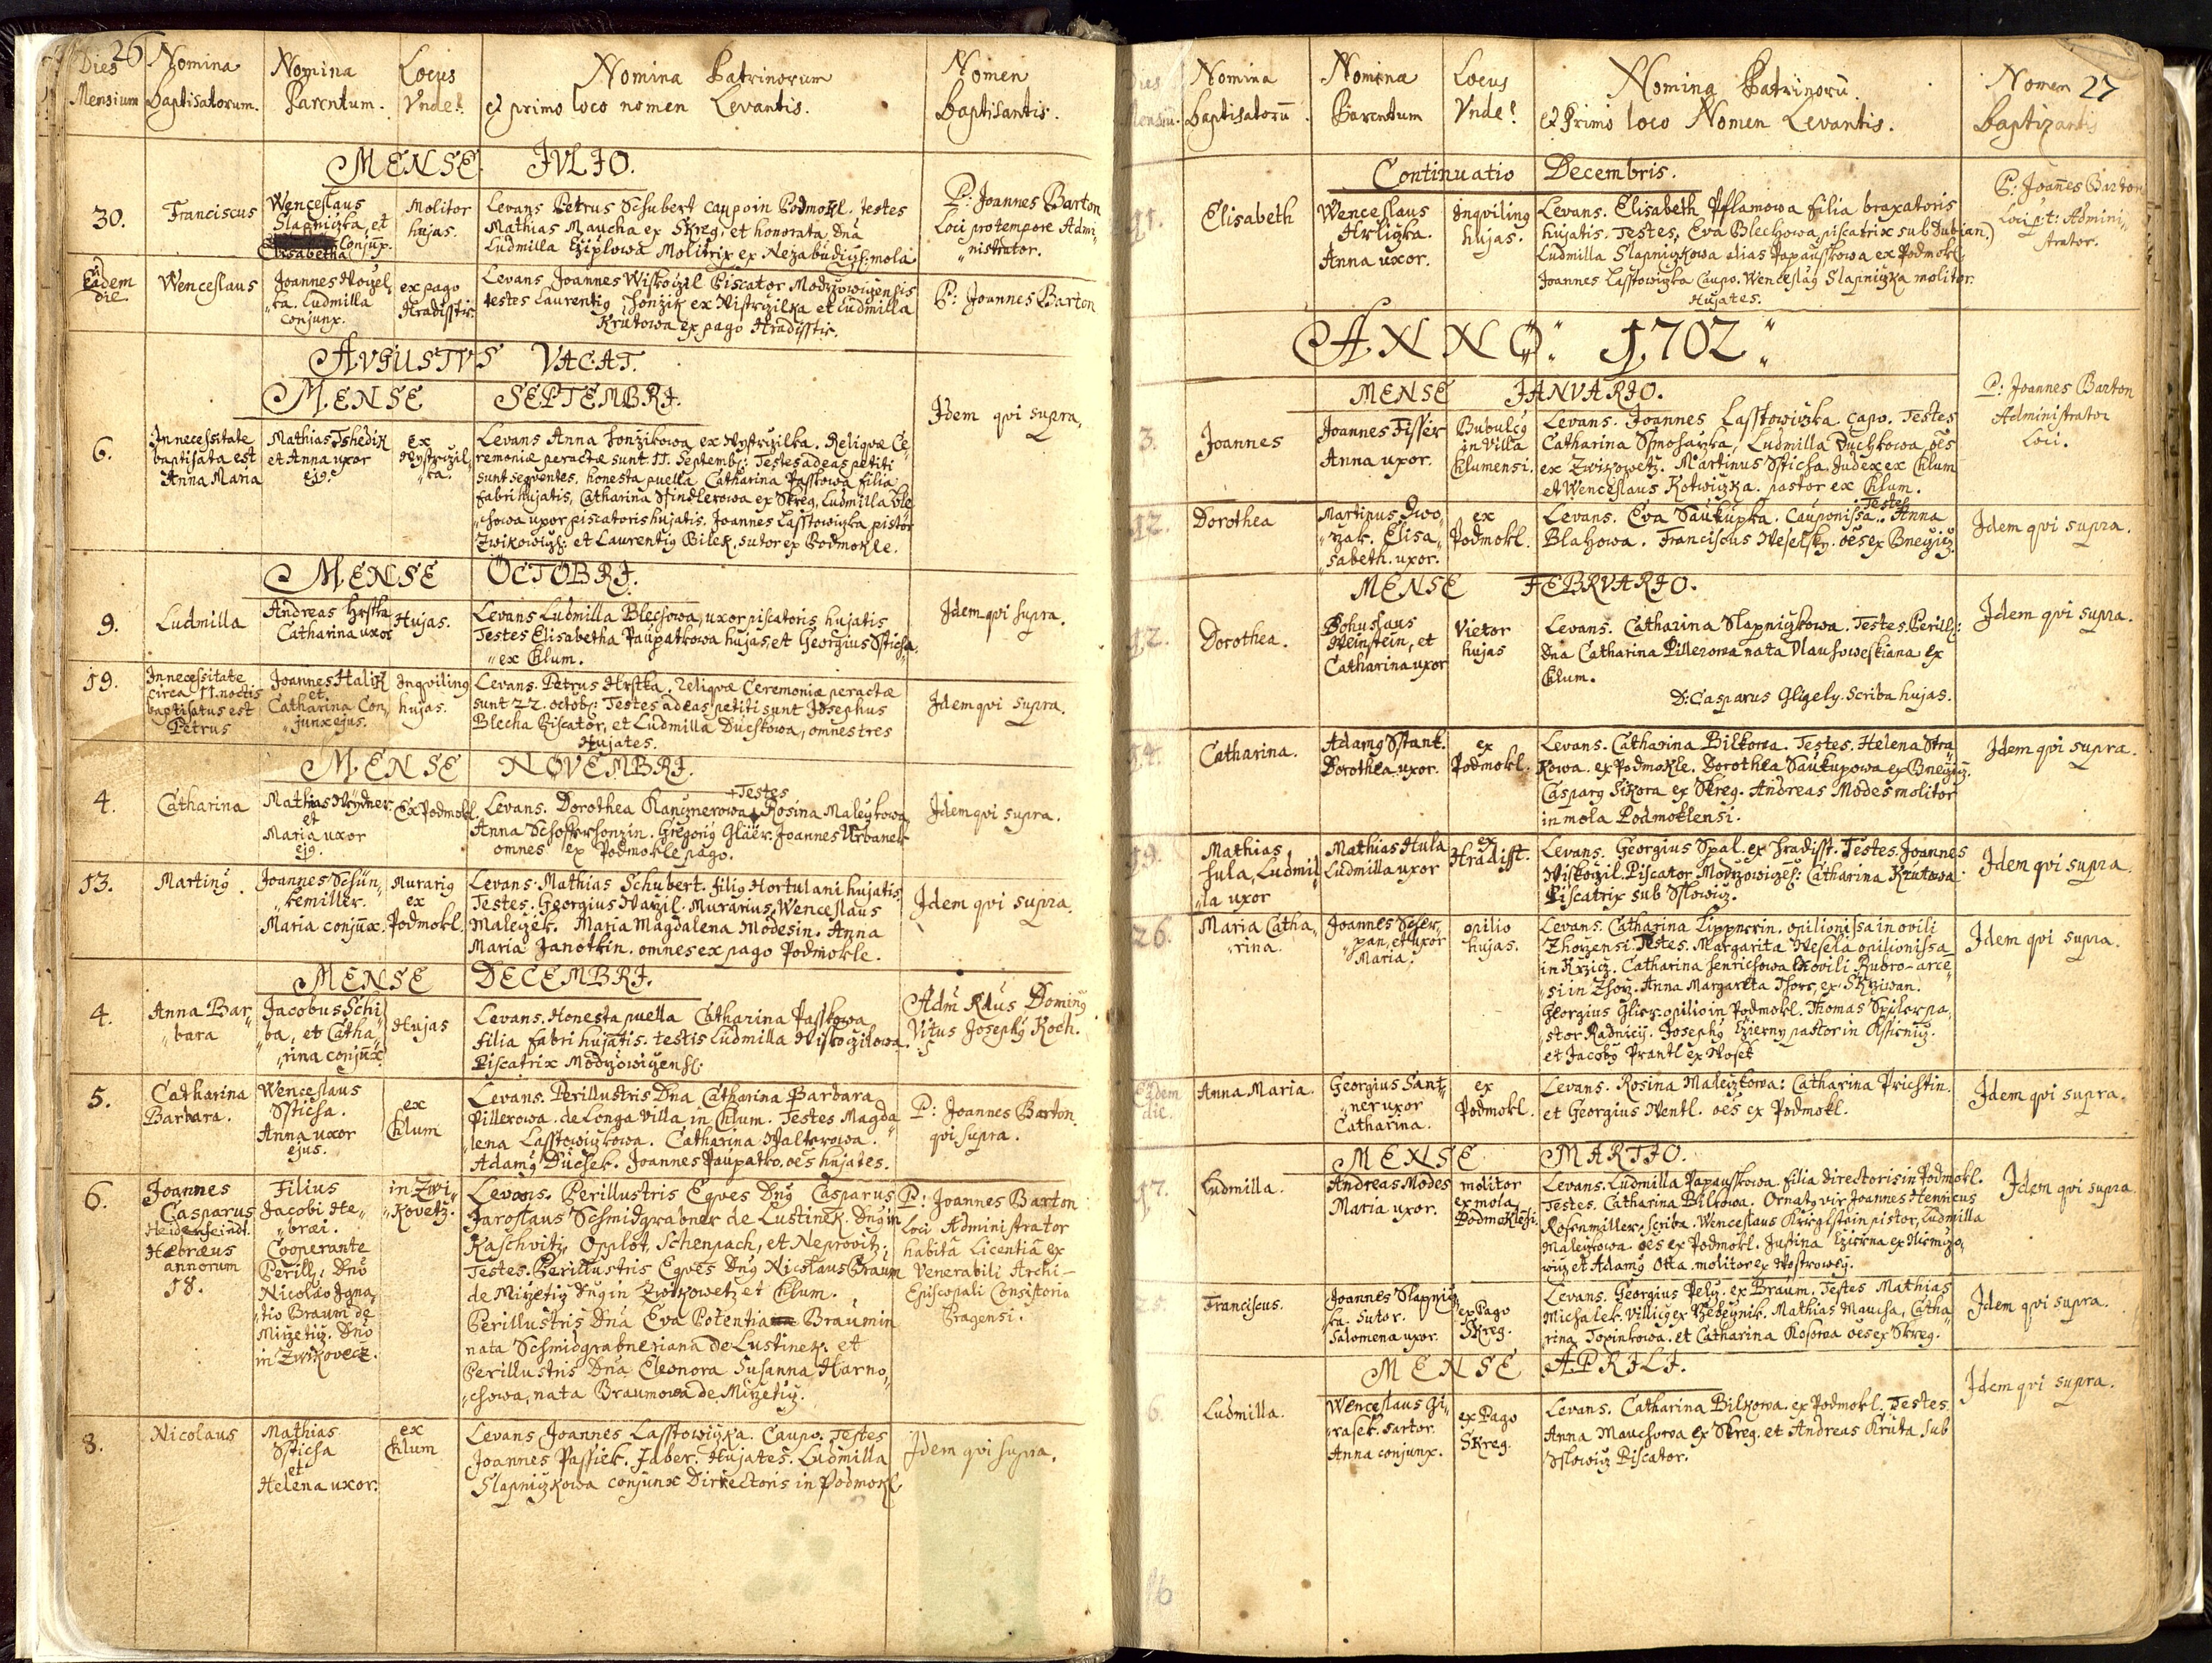 26
Dies Mensium
Nomina baptisatorum.
Nomina Parentum.
Locus Vnde?
Nomina Patrinorum
et primo loco nomen Levantis.
Nomen baptisantis.
MENSE JVLIO.
30.
Franciscus
Wenceslaus
Slapniczka, et
Conjux.
Elisabetha
Molitor
hujas.
Levans Petrus Schubert caupo in Podmokl. testes
Mathias Maucha ex Skreg, et honorata Dna
Ludmilla Cziplowa Molitrix ex Nezabudicz: mola
P: Joannes Barton
Loci pro tempore Admi„
„nistrator.
Eadem
die
Wenceslaus
ca. Ludmilla
conjunx.
ex pago
Hradisstie.
Levans Joannes Wiskoczil Piscator
testes Laurentig Honzik ex Nistrzilka et Ludmilla
Krutowa ex pago Hradisstie.
P: Joannes Barton
AVGUSTVS VACAT.
MENSE SEPTEMBRI.
6.
In necessitate
baptisata est
Anna Maria
Mathias
et Anna uxor
ejg.
ex
Nystrzil„
„ka.
Levans Anna Honzikowa ex Nystrzilka. Reliqvæ Ce„
remoniæ peractæ sunt 11. Septemb: Testes ad eas petiti
sunt seqventes, honesta puella Catharina Passkowa filia
fabri hujatis, Catharina Sfindlerowa ex Skreg, Ludmilla Ble„
„chowa uxor piscatoris hujatis. Joannes Lasstowiczka pistor
Zwikowicz: et Laurentig Bilek, sutor ex Podmokle.
Idem qvi supra.
MENSE OCTOBRI.
9.
Ludmilla
Andreas Hrstka
Catharina uxor
Hujas.
Levans Ludmilla Blechowa, uxor piscatoris hujatis
Testes Elisabetha Paupatkowa hujas, et Georgius Sticha
„ex Chlum.
Idem qvi supra.
19.
In necessitate
circa 11. noctis
baptisatus est
Petrus
Joannes Halik
et
Catharina Con„
junx ejus.
Inqviling
hujas.
Levans. Petrus Hrstka. Reliqvæ Ceremoniæ peractæ
sunt 22. octob: Testes ad eas petiti sunt Josephus
Blecha Piscator, et Ludmilla Duchkowa, omnes tres
Hujates.
Idem qvi supra.
MENSE NOVEMBRI.
4.
Catharina
Mathias Wydner
et
Maria uxor
ejg.
Ex Podmokl.
+Testes
Levans. Dorothea Kanznerowa + Rosina Maleczkowa,
Anna. Gregorig Gluer. Joannes Urbanek
omnes ex Podmokle pago.
Idem qvi supra.
13.
Marting
Joannes Schün„
„kemiller.
Maria conjux.
Murarig
ex
Podmokl.
Levans. Mathias Schubert. filig Hortulani hujatis.
Testes. Georgius Navzil. Murarius, Wenceslaus
Maleczek. Maria Magdalena Modesin. Anna
Maria Janotkin. omnes ex pago Podmokle.
Idem qvi supra.
MENSE DECEMBRI.
4.
Anna Bar„
„bara
Jacobus Schi„
„ba, et Catha„
„rina conjux
Hujas
Levans. Honesta puella Catharina Passkowa
filia fabri hujatis. testis Ludmilla Wiskoczilowa.
Piscatrix
Adm Rdus Doming
Vitus Josephg Koch.
5.
Catharina
Barbara.
Wenceslaus
Sticha.
Anna uxor
ejus.
ex
Chlum
Levans. Perillustris Dna Catharina Barbara
Pillerowa. de Longa villa in Chlum. Testes Magda„
„lena Lasstowiczkowa. Catharina Walterowa.
Adamg Duchek. Joannes Paupatko. oes hujates.
P: Joannes Barton.
qvi supra.
6.
Joannes
Casparus
Hebræus
annorum
18.
Filius
Jacobi He„
„bræi.
Cooperante
Perill: Dno
Nicolao Igna„
„tio Braum de
Mirzeticz. Dno
in Zwikovecz.
in Zwi„
„kovetz.
Levans. Perillustris Eqves Dng Casparus
Jaroslaus Schmidgrabner de Lustinek. Dng in
Kaschvitz, Opplot, Schenpach, et Neprovitz.
Testes. Perillustris Eqves Dng Nicolaus Braum
de Mirzeticz Dng in Zwikowetz et Chlum.
Perillustris Dna Eva Potentia Braumin
nata Schmidgrabneriana de Lustinek. et
Perillustris Dna Eleonora Susanna Harno„
„chowa, nata Braumowa de Mirzeticz.
P: Joannes Barton
Loci Administrator
habitâ Licentiâ ex
Venerabili Archi–
Episcopali Consistorio
Pragensi.
8.
Nicolaus
Mathias
Sticha
et
Helena uxor.
ex
Chlum
Levans Joannes Lasstowiczka. Caupo. Testes
Joannes Passiek. Faber. Hujates. Ludmilla
Slapniczkowa conjunx Directoris in Podmokl
Idem qvi supra.
27
Dies
Nomina
baptisatorū.
Nomina
Parentum
Locus
Vnde?
Nomina Patrinorū.
et Primo loco Nomen Levantis.
Nomen
baptizantis
Continuatio Decembris.
11.
Elisabeth
Wenceslaus
Hrlizka.
Anna uxor.
Inqviling
hujas.
Levans. Elisabeth Pflamowa filia braxatoris
hujatis. Testes, Eva Blechowa, piscatrix sub Dubian.
Ludmilla Slapniczkowa alias Papausskowa ex Podmokl.
Joannes Lasstowiczka Caupo. Wenceslag Slapniczka molitor.
Hujates.
P: Joannes Barton
Loci p:t: Admini„
strator.
ANNO. 1702.
MENSE JANVARIO.
3.
Joannes
Joannes Fisser
Anna uxor.
Bubulcg
in villa
Chlumensi.
Levans. Joannes Lasstowiczka. capo. Testes
Catharina, Ludmilla Duchkowa, oes
ex Zwikowetz. Martinus Sticha. Judex ex Chlum
et Wenceslaus Kotwizka. pastor ex Chlum.
P: Joannes Barton
Administrator
Loci.
12.
Dorothea
Martinus Dwo„
„rzak. Elisa„
„sabeth. uxor.
ex
Podmokl.
Testes
Levans. Eva Saukupka. Cauponissa.. Anna
Blahowa. Franciscus Weselsky. oes ex
Idem qvi supra.
MENSE FEBRVARIO.
12.
Dorothea.
Bohuslaus
Weinstein, et
Catharina uxor
Vietor
hujas
Levans. Catharina Slapniczkowa. Testes. Perill:
Dna Catharina Pillerowa nata ex
Chlum.
D: Casparus Gligely. Scriba hujas.
Idem qvi supra.
14.
Catharina.
Adamg Stant.
Dorothea uxor.
ex
Podmokl.
Levans. Catharina Bilkowa. Testes. Helena Stra„
kowa. ex Podmokle. Dorothea Saukupowa ex
Casparg Sikora ex Skreg. Andreas Modes molitor
in mola Podmoklensi.
Idem qvi supra.
19.
Mathias
Hula, Ludmil„
„la uxor
Mathias Hula
Ludmilla uxor
ex
Hradisst.
Levans. Georgius Spal. ex Hradisst. Testes. Joannes
Wiskoczil. Piscator. Catharina Krutowa
Piscatrix sub Slowicz.
Idem qvi supra.
26.
Maria Catha„
„rina.
Joannes
pan, et uxor
Maria.
opilio
hujas.
Levans. Catharina Lippnerin. opilionissa in ovili
Testes. Margarita Wesela opilionissa
in Krzicz. Catharina Henrichowa ex ovili Rubro–arce„
„si in. Anna Margareta Thors, ex Skrziwan.
Georgius Glier. opilio in Podmokl. Thomas Spiler pa„
„stor Radnicij. Josephg Czierny pastor in
et Jacobg Prantl ex
Idem qvi supra.
Eadem
die
Anna Maria.
Georgius Sant„
„ner uxor
Catharina.
ex
Podmokl.
Levans. Rosina Maleczkowa: Catharina Prichtin.
et Georgius Wentl. oes ex Podmokl.
Idem qvi supra.
MENSE MARTIO.
17.
Ludmilla.
Andreas Modes
Maria uxor.
molitor
ex mola
Podmoklesi.
Levans. Ludmilla Papausskowa. filia directoris in Podmokl.
Testes. Catharina Bilkowa. Ornatg vir Joannes Henricus
Rosenmiller, scriba. Wenceslaus pistor, Ludmilla
Maleczkowa. oes ex Podmokl. Justina Czierna ex
et Adamg Otta. molitor ex
Idem qvi supra
25.
Franciscus.
Joannes Slapnicz„
ka. Sutor.
Salomena uxor.
ex Pago
Skreg.
Levans. Georgius Pely. ex Braum. Testes Mathias
Michalek. villicg ex. Mathias Maucha, Catha„
„rina Topinkowa. et Catharina Kosowa oes ex Skreg.
Idem qvi supra.
MENSE APRILI.
6.
Ludmilla.
Wenceslaus Gi„
„rasek. sartor.
Anna conjunx.
ex Pago
Skreg.
Levans. Catharina Bilkowa. ex Podmokl. Testes.
Anna Mauchowa ex Skreg. et Andreas Kruta. sub
Slowicz Piscator.
Idem qvi supra.